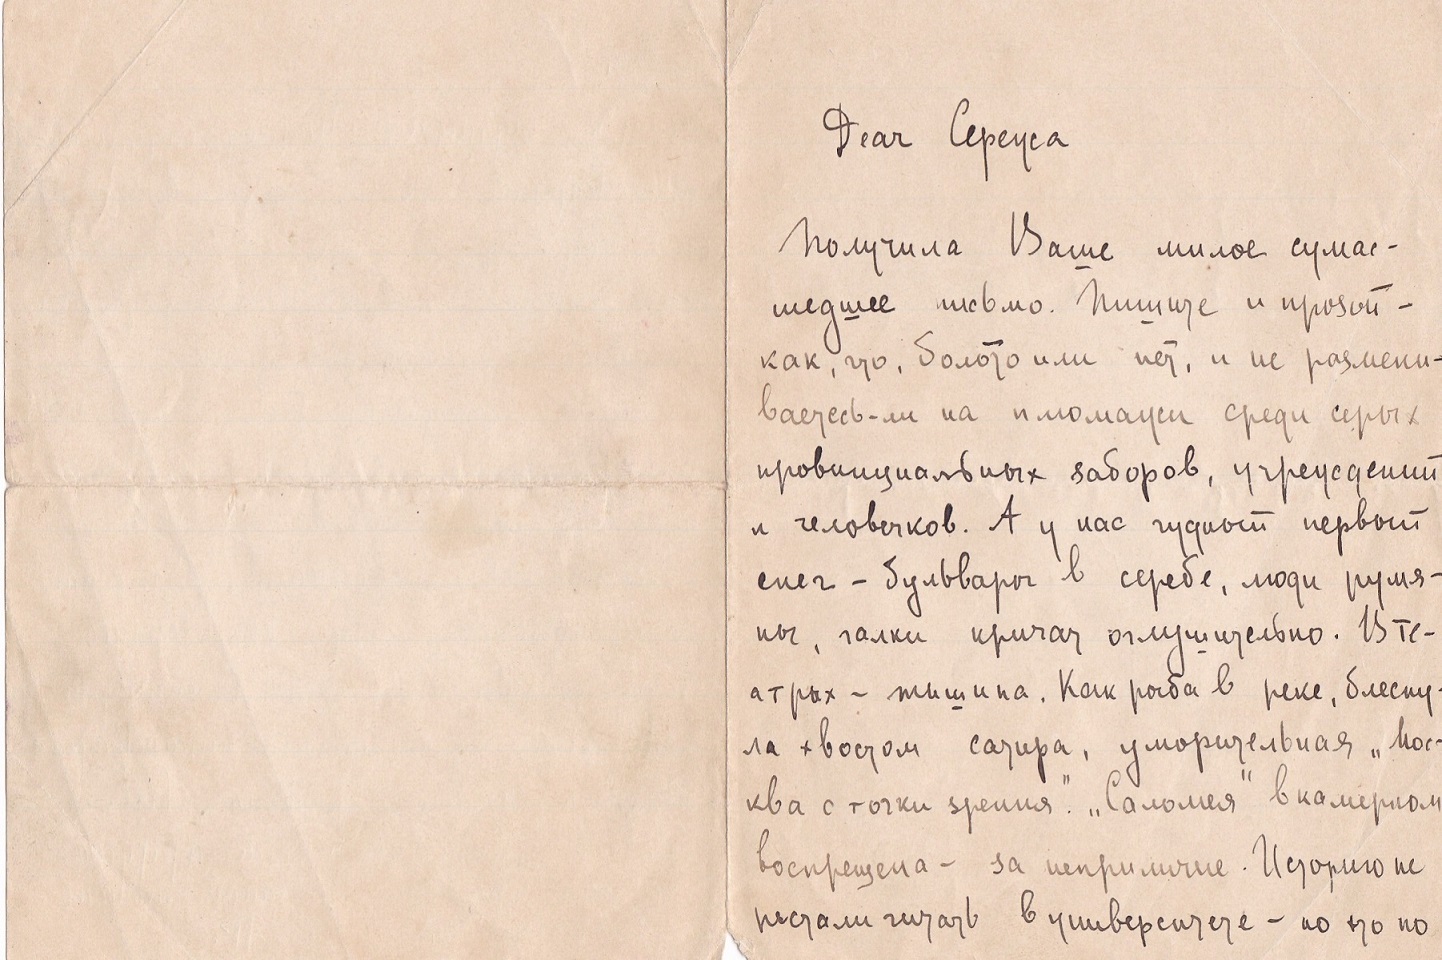 Dear Сережа
Получила Ваше милое сумас-
шедшее письмо. Пишите и прозой -
как, что, болото или нет, и не размени-
ваетесь-ли на среди серых
провинциальных заборов, учреждений
и человечков. А у нас чудный первый
снег - бульвары в серебе, люди румя-
ны, галки кричат оглушительно. В те-
атрах - тишина. Как рыба в реке, блесну-
ла хвостом сатира, уморительная „Мос-
ква с точки зрения". „Саломея" в камерном
воспрещена - за неприличие. Историю не
стали читать в университете - но это по